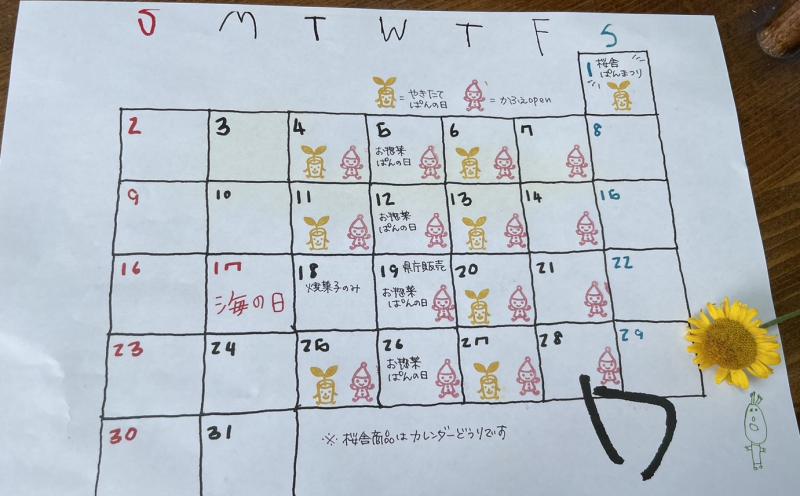 S M T W T F S
1 桜舎
ぱんまつり
= やきたて
ぱんの日
= かふぇopen
2 3 4 5 6 7 8
お惣菜
ぱんの日
9 10 11 12 13 14 15
お惣菜
ぱんの日
16 17 18 19 県庁販売 20 21 22
海の日
焼菓子のみ
お惣菜
ぱんの日
23 24 25 26 27 28 29
お惣菜
ぱんの日
30 31
※ 桜舎商品はカレンダーどうりです
7